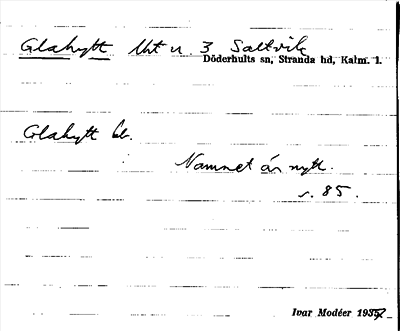 Glahytt lht u. 3 Saltvik
Döderhults sn, Stranda hd, Kalm. l.
Glahytt bl.
Namnet är nytt.
s. 85.
Ivar Modéer 1932